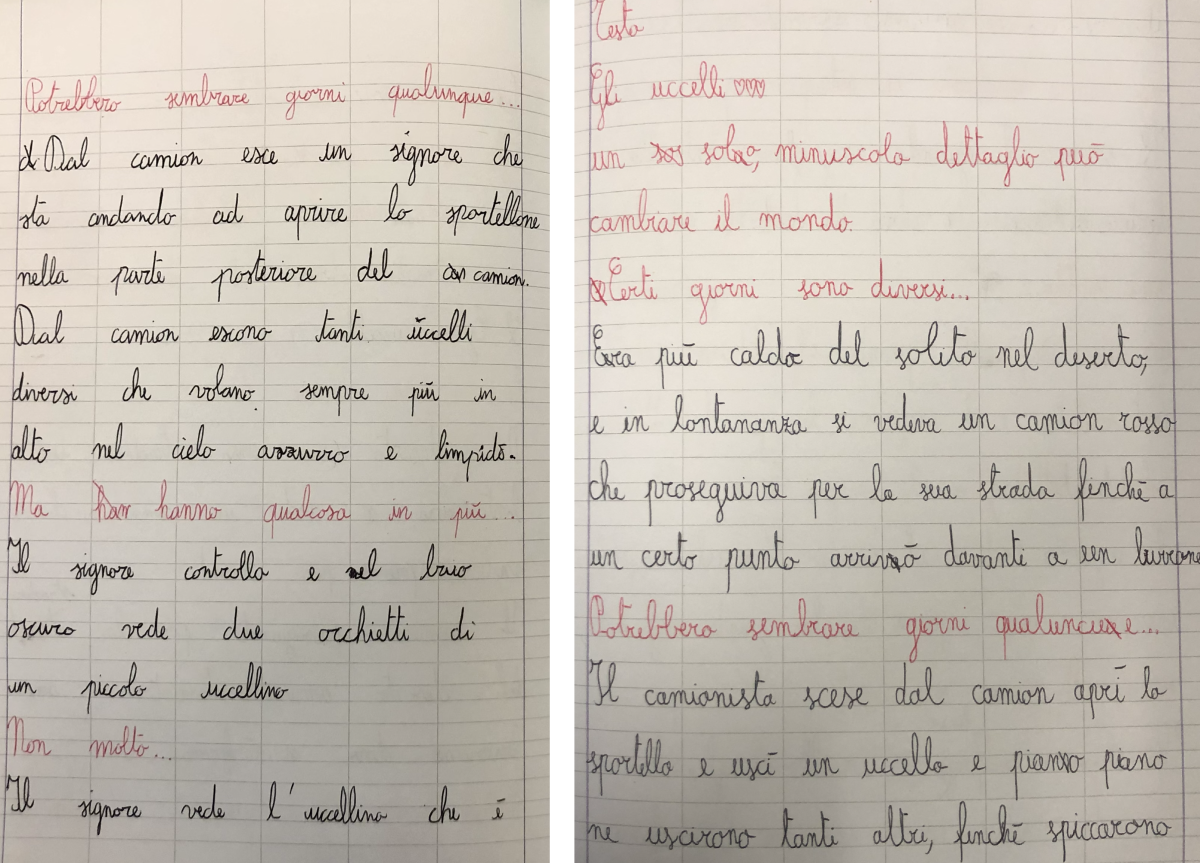 Potrebbero sembrare giorni qualunque...
Dal camion esce un signore che
stà andando ad aprire lo sportellone
nella parte posteriore del camion.
Dal camion escono tanti uccelli
diversi che volano sempre più in
alto nel cielo azzurro e limpido.
Ma hanno qualcosa in più...
Il signore controlla e nel buio
oscuro vede due occhietti di
un piccolo uccellino
Non molto...
Il signore vede l'uccellino che è
Testo
Gli uccelli
un solo, minuscolo dettaglio può
cambiare il mondo.
Certi giorni sono diversi...
Era più caldo del solito nel deserto,
e in lontananza si vedeva un camion rosso
che proseguiva per la sua strada finchè a
un certo punto arrivò davanti a un burrone
Potrebbero sembrare giorni qualunque...
Il camionista scese dal camion aprì lo
sportello e uscì un uccello e piano piano
ne uscirono tanti altri, finchè spiccarono